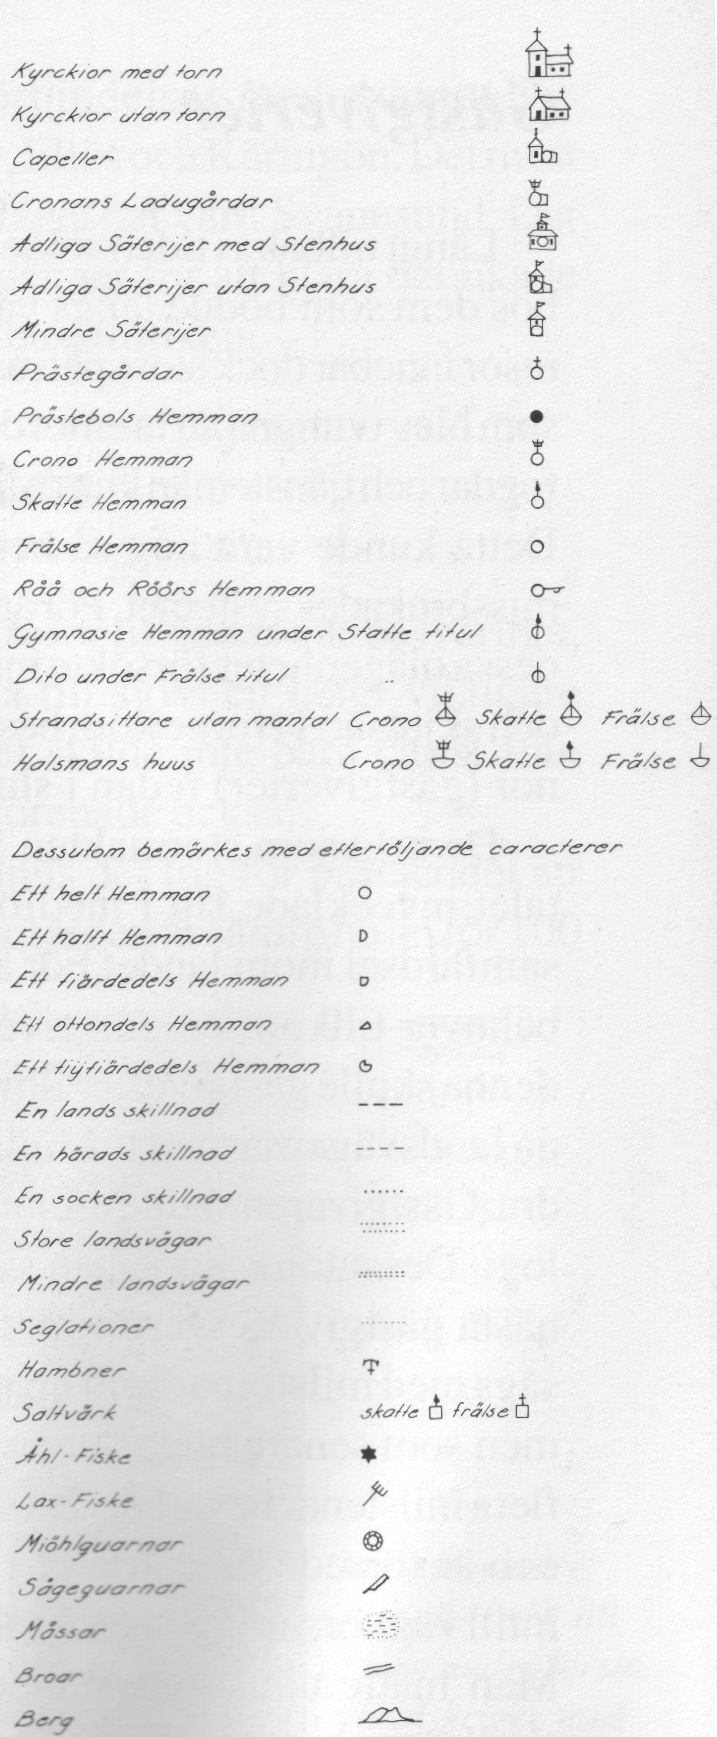 Kyrckior med torn
Kyrckior utan torn
Capeller
Cronans Ladugårdar
Adliga Säterijer med Stenhus
Adliga Säterijer utan Stenhus
Mindre Säterijer
Prästegårdar
Prästebols Hemman
Crono Hemman
Skatte Hemman
Frälse Hemman
Råå och Röörs Hemman
Gymnasie Hemman under Statte titul
Dito under Frälse titul
Strandsittare utan mantal Crono Skatte Frälse
Halsmans huus Crono Skatte Frälse
Dessutom bemärkes med efterföljande caracterer
Ett helt Hemman
Ett halft Hemman
Ett fiärdedels Hemman
Ett ottondels Hemman
Ett tiyfiärdedels Hemman
En lands skillnad
En härads skillnad
En socken skillnad
Store landsvägar
Mindre landsvägar
Seglationer
Hambner
Saltvärk skatte frälse
Åhl-Fiske
Lax-Fiske
Miöhlquarnar
Sågequarnar
Måssar
Broar
Berg